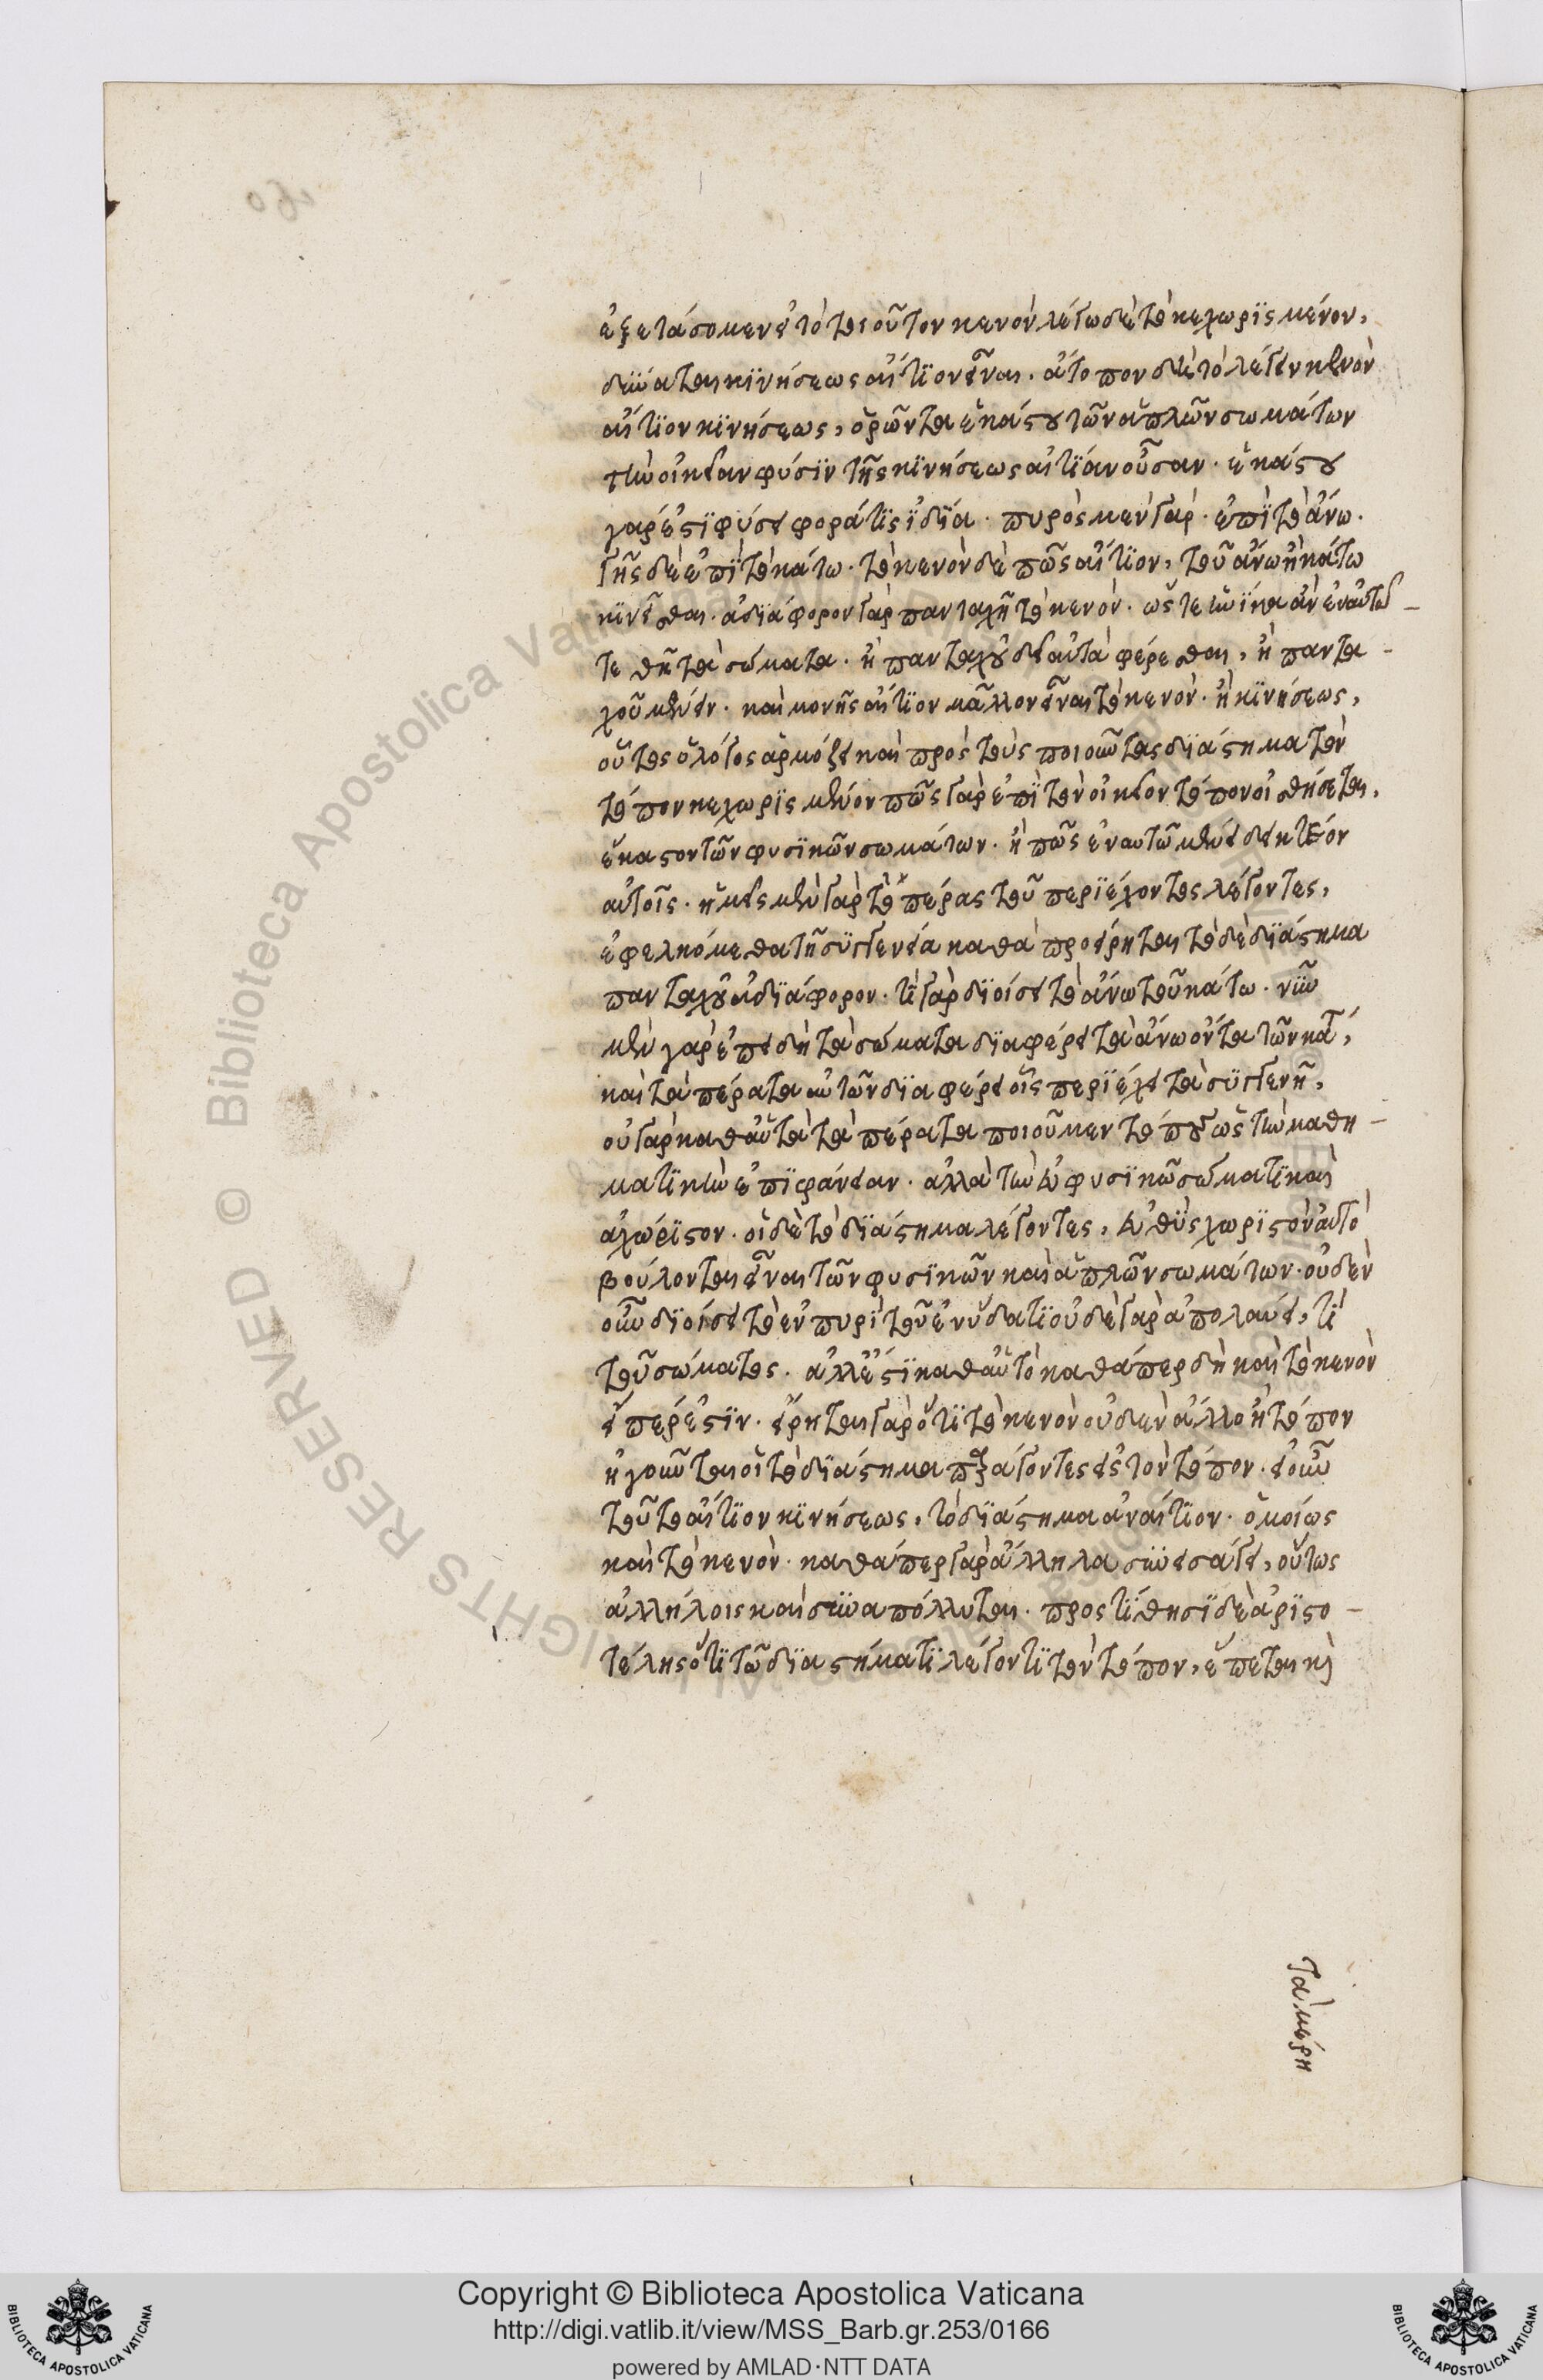 ἐξετάσομεν εἰ τὸ τοιοῦτον κενὸν λέγω δὲ τὸ κεχωρϊσμένον,
δύναται κϊνήσεως αἴτϊον εἶναι. ἄτοπον δὲ τὸ λέγειν κενὸν
αἴτϊον κϊνήσεως, ὁρῶντα ἑκάστου τῶν ἁπλῶν σωμάτων
τὴν οἰκείαν φύσϊν τῆς κϊνήσεως αἰτϊάν οὖσαν. ἑκάστου
γάρ ἐστϊ φύσει φορά τϊς ϊδϊά. πυρὸς μεν γάρ. ἐπϊ τὸ ἄνω.
γῆς δὲ ἐπϊ τὸ κάτω. τὸ κενὸν δὲ πῶς αἴτϊον, τοῦ ἄνω ἢ κάτω
κϊνεῖσθαι. ἀδϊάφορον γὰρ πανταχῆ τὸ κενόν. ὥστε ἡνίκα ἂν ἐν αὐτῶ
τεθῆ τὰ σώματα. ἢ πανταχοῦ δεῖ αὐτὰ φέρεσθαι, ἢ παντα
χοῦ μένειν. καὶ μονῆς αἴτϊον μᾶλλον εἶναι τὸ κενὸν. ἢ κϊνήσεως,
οὗτος ὁ λόγος ἁρμόξει καὶ πρός τοὺς ποιοῦντας δϊάστημα τὸν
τόπον κεχωρϊσμένον πῶς γὰρ ἐπϊ τὸν οἰκεῖον τόπον οἰσθήσεται,
ἕκαστον τῶν φυσϊκῶν σωμάτων. ἢ πῶς ἐν αυτῶ μένει δεικτέον
αὐτοῖς. ἡμεῖς μὲν γὰρ τὸ πέρας τοῦ περϊέχοντος λέγοντες,
ἐφελκόμεθα τῆ συγγενείά καθὰ προείρηται τὸ δὲ δϊάστημα
πανταχοῦ ἀδϊάφορον. τϊ γὰρ δϊοίσει τὸ ἄνω τοῦ κάτω. νῦν
μὲν γάρ ἐπειδὴ τὰ σώματα δϊαφέρει τὰ ἄνω ὄντα τῶν κάτω,
καὶ τὰ πέρατα αὐτῶν δϊαφέρει οἷς περϊέχει τὰ συγγενῆ,
οὐ γὰρ καθ' αὑτὰ τὰ πέρατα ποιοῦμεν τόπους ὡς τὴν μαθη
ματϊκὴν ἐπϊφάνειαν. ἀλλὰ τὴν ἐν φυσϊκῶ σώματϊ καὶ
ἀχώρϊστον. οἱ δὲ τὸ δϊάστημα λέγοντες, εὐθὺς χωρϊστὸν αὐτὸ
βούλονται εἶναι τῶν φυσϊκῶν καὶ ἁπλῶν σωμάτων. οὐδὲν
οὖν δϊοίσει τὸ ἐν πυρϊ τοῦ ἐν ὕδατϊ οὐδὲ γὰρ ἀπολαύει, τϊ
τοῦ σώματος. ἀλλ' ἔστϊ καθ' αὑτὸ καθάπερ δὴ καὶ τὸ κενὸν
εἴπερ ἐστϊν. εἴρηται γὰρ ὅτϊ τὸ κενὸν οὐδὲν ἄλλο ἢ τόπον
ἡγοῦνται οἱ τὸ δϊάστημα παράγοντες εἰς τὸν τόπον. εἰ οὖν
τοῦτο αἴτϊον κϊνήσεως, τὸ δϊάστημα ἀναίτϊον. ὁμοίως
καὶ τὸ κενὸν. καθάπερ γὰρ ἄλληλα συνεισάγει, οὕτως
ἀλλήλοις καὶ συναπόλλυται. προστϊθησϊ δὲ ἀρϊστο
τέλης ὅτϊ τῶ δϊαστήματϊ λέγοντϊ τὸν τόπον, ἕπεται καὶ
τὰ μέρη
Copyright © Biblioteca Apostolica Vaticana
http://digi.vatlib.it/view/MSS_Barb.gr.253/0166
powered by AMLAD·NTT DATA